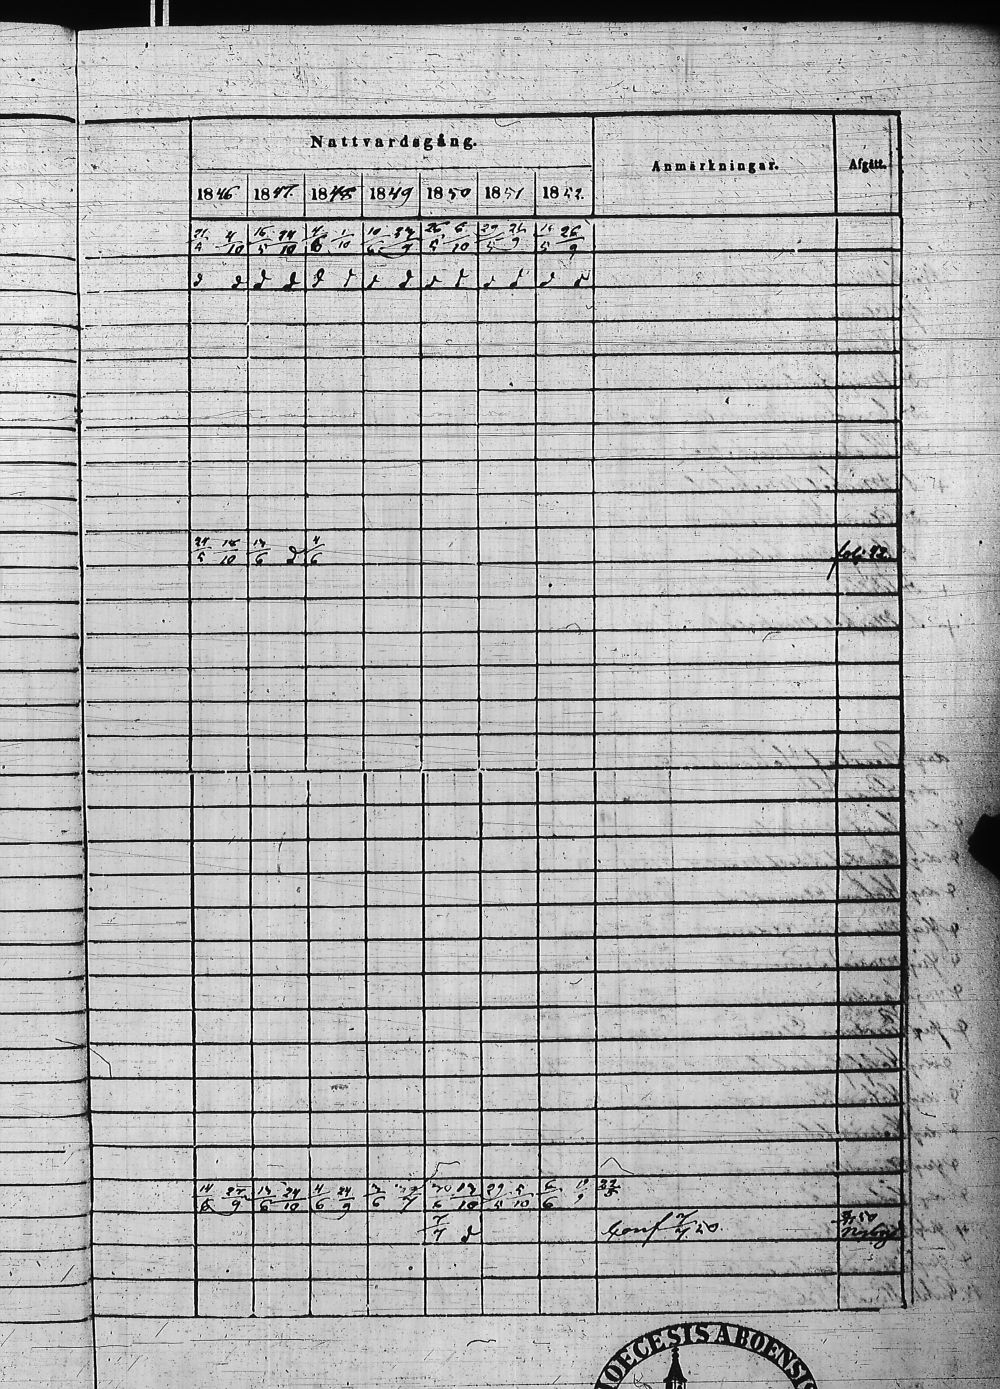 Nattvardsgång.
Anmärkningar.
Afgått.
1846 1847 1848 1849 1850 1851 1852.
21/4 4/10 16/5 24/10 4/6 1/10 10/6 27/9 26/5 6/10 29/5 21/9 16/5 26/9
d d d d d d d d d d d d d d
24/5 18/10 13/6 d 4/6 fol: 42.
14/6 27/9 13/6 24/10 4/6 24/9 3/6 30/6 13/10 29/5 5/10 6/6 19/9 22/5
7/7 d Conf 7/7 50.
DIOECESIS ABOENSIS